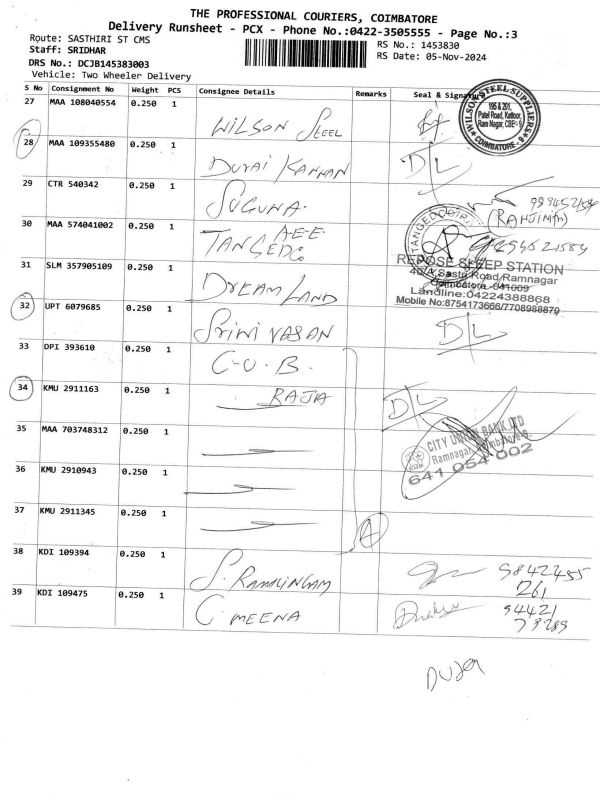 THE PROFESSIONAL COURIERS, COIMBATORE
Delivery Runsheet - PCX - Phone No.:0422-3505555 - Page No.:3
Route: SASTHIRI ST CMS
Staff: SRIDHAR
RS No.: 1453830
DRS No.: DCJB145383003
RS Date: 05-Nov-2024
Vehicle: Two Wheeler Delivery
S No Consignment No Weight PCS Consignee Details Remarks Seal & Signature
27 MAA 108040554 0.250 1 WILSON STEEL
WILSON STEEL SUPPLIERS
195 & 201,
Patel Road, Kattoor,
Ram Nagar, CBE - 9
COIMBATORE - 9
28 MAA 109355480 0.250 1 DURAI KANNAN D/L
29 CTR 540342 0.250 1 SUGUNA.
(RANJINI)
30 MAA 574041002 0.250 1 A-E-E
TANGEDCO
31 SLM 357905109 0.250 1 DREAM LAND
REPOSE SLEEP STATION
40/4, Sastri Road, Ramnagar
Coimbatore -641009
Landline:04224388868
Mobile No:8754173666/7708988879
32 UPT 6079685 0.250 1 SRINI VASAN D/L
33 DPI 393610 0.250 1 C-U-B.
34 KMU 2911163 0.250 1 RAJA D/L
35 MAA 703748312 0.250 1
CITY UNION BANK LTD
Ramnagar, Coimbatore-9.
641 054 002
36 KMU 2910943 0.250 1
37 KMU 2911345 0.250 1
A
38 KDI 109394 0.250 1 S. RAMLINGAM 9842455
261
39 KDI 109475 0.250 1 C MEENA 94421
79289